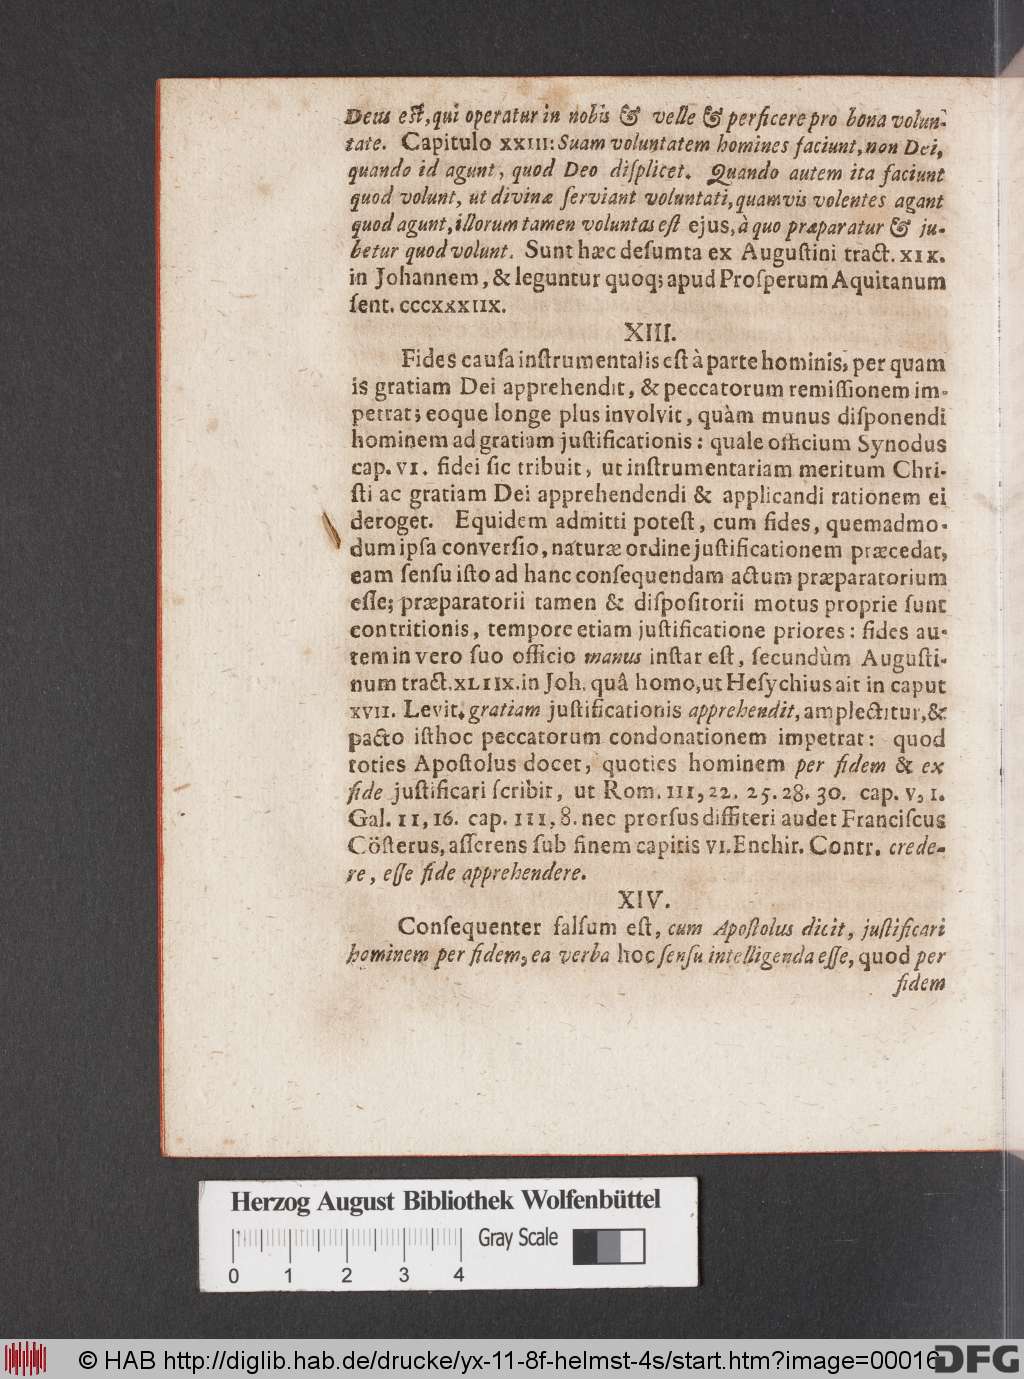 Deus eſt, qui operatur in nobis & velle & perficere pro bona volun-
tate. Capitulo XXIII: Suam voluntatem homines faciunt, non Dei,
quando id agunt, quod Deo diſplicet. Quando autem ita faciunt
quod volunt, ut divinæ ſerviant voluntati, quamvis volentes agant
quod agunt, illorum tamen voluntas eſt ejus, à quo præparatur & ju-
betur quod volunt. Sunt hæc deſumta ex Auguſtini tract. XIX.
in Johannem, & leguntur quoq; apud Proſperum Aquitanum
ſent. CCCXXXIIX.
XIII.
Fides cauſa inſtrumentalis eſt à parte hominis, per quam
is gratiam Dei apprehendit, & peccatorum remiſſionem im-
petrat; eoque longe plus involvit, quàm munus diſponendi
hominem ad gratiam juſtificationis: quale officium Synodus
cap. VI. fidei ſic tribuit, ut inſtrumentariam meritum Chri-
ſti ac gratiam Dei apprehendendi & applicandi rationem ei
deroget. Equidem admitti poteſt, cum fides, quemadmo-
dum ipſa converſio, naturæ ordine juſtificationem præcedat,
eam ſenſu iſto ad hanc conſequendam actum præparatorium
eſſe; præparatorii tamen & diſpoſitorii motus proprie ſunt
contritionis, tempore etiam juſtificatione priores: fides au-
tem in vero ſuo officio manus inſtar eſt, ſecundùm Auguſti-
num tract. XLIIX. in Joh. quâ homo, ut Heſychius ait in caput
XVII. Levit. gratiam juſtificationis apprehendit, amplectitur, &
pacto iſthoc peccatorum condonationem impetrat: quod
toties Apoſtolus docet, quoties hominem per fidem & ex
fide juſtificari ſcribit, ut Rom. III, 22. 25. 28. 30. cap. V, 1.
Gal. II, 16. cap. III, 8. nec prorſus diffiteri audet Franciſcus
Cöſterus, aſſerens ſub finem capitis VI. Enchir. Contr. crede-
re, eſſe fide apprehendere.
XIV.
Conſequenter falſum eſt, cum Apoſtolus dicit, juſtificari
hominem per fidem, ea verba hoc ſenſu intelligenda eſſe, quod per
fidem
Herzog August Bibliothek Wolfenbüttel
Gray Scale
0 1 2 3 4
© HAB http://diglib.hab.de/drucke/yx-11-8f-helmst-4s/start.htm?image=00016
DFG